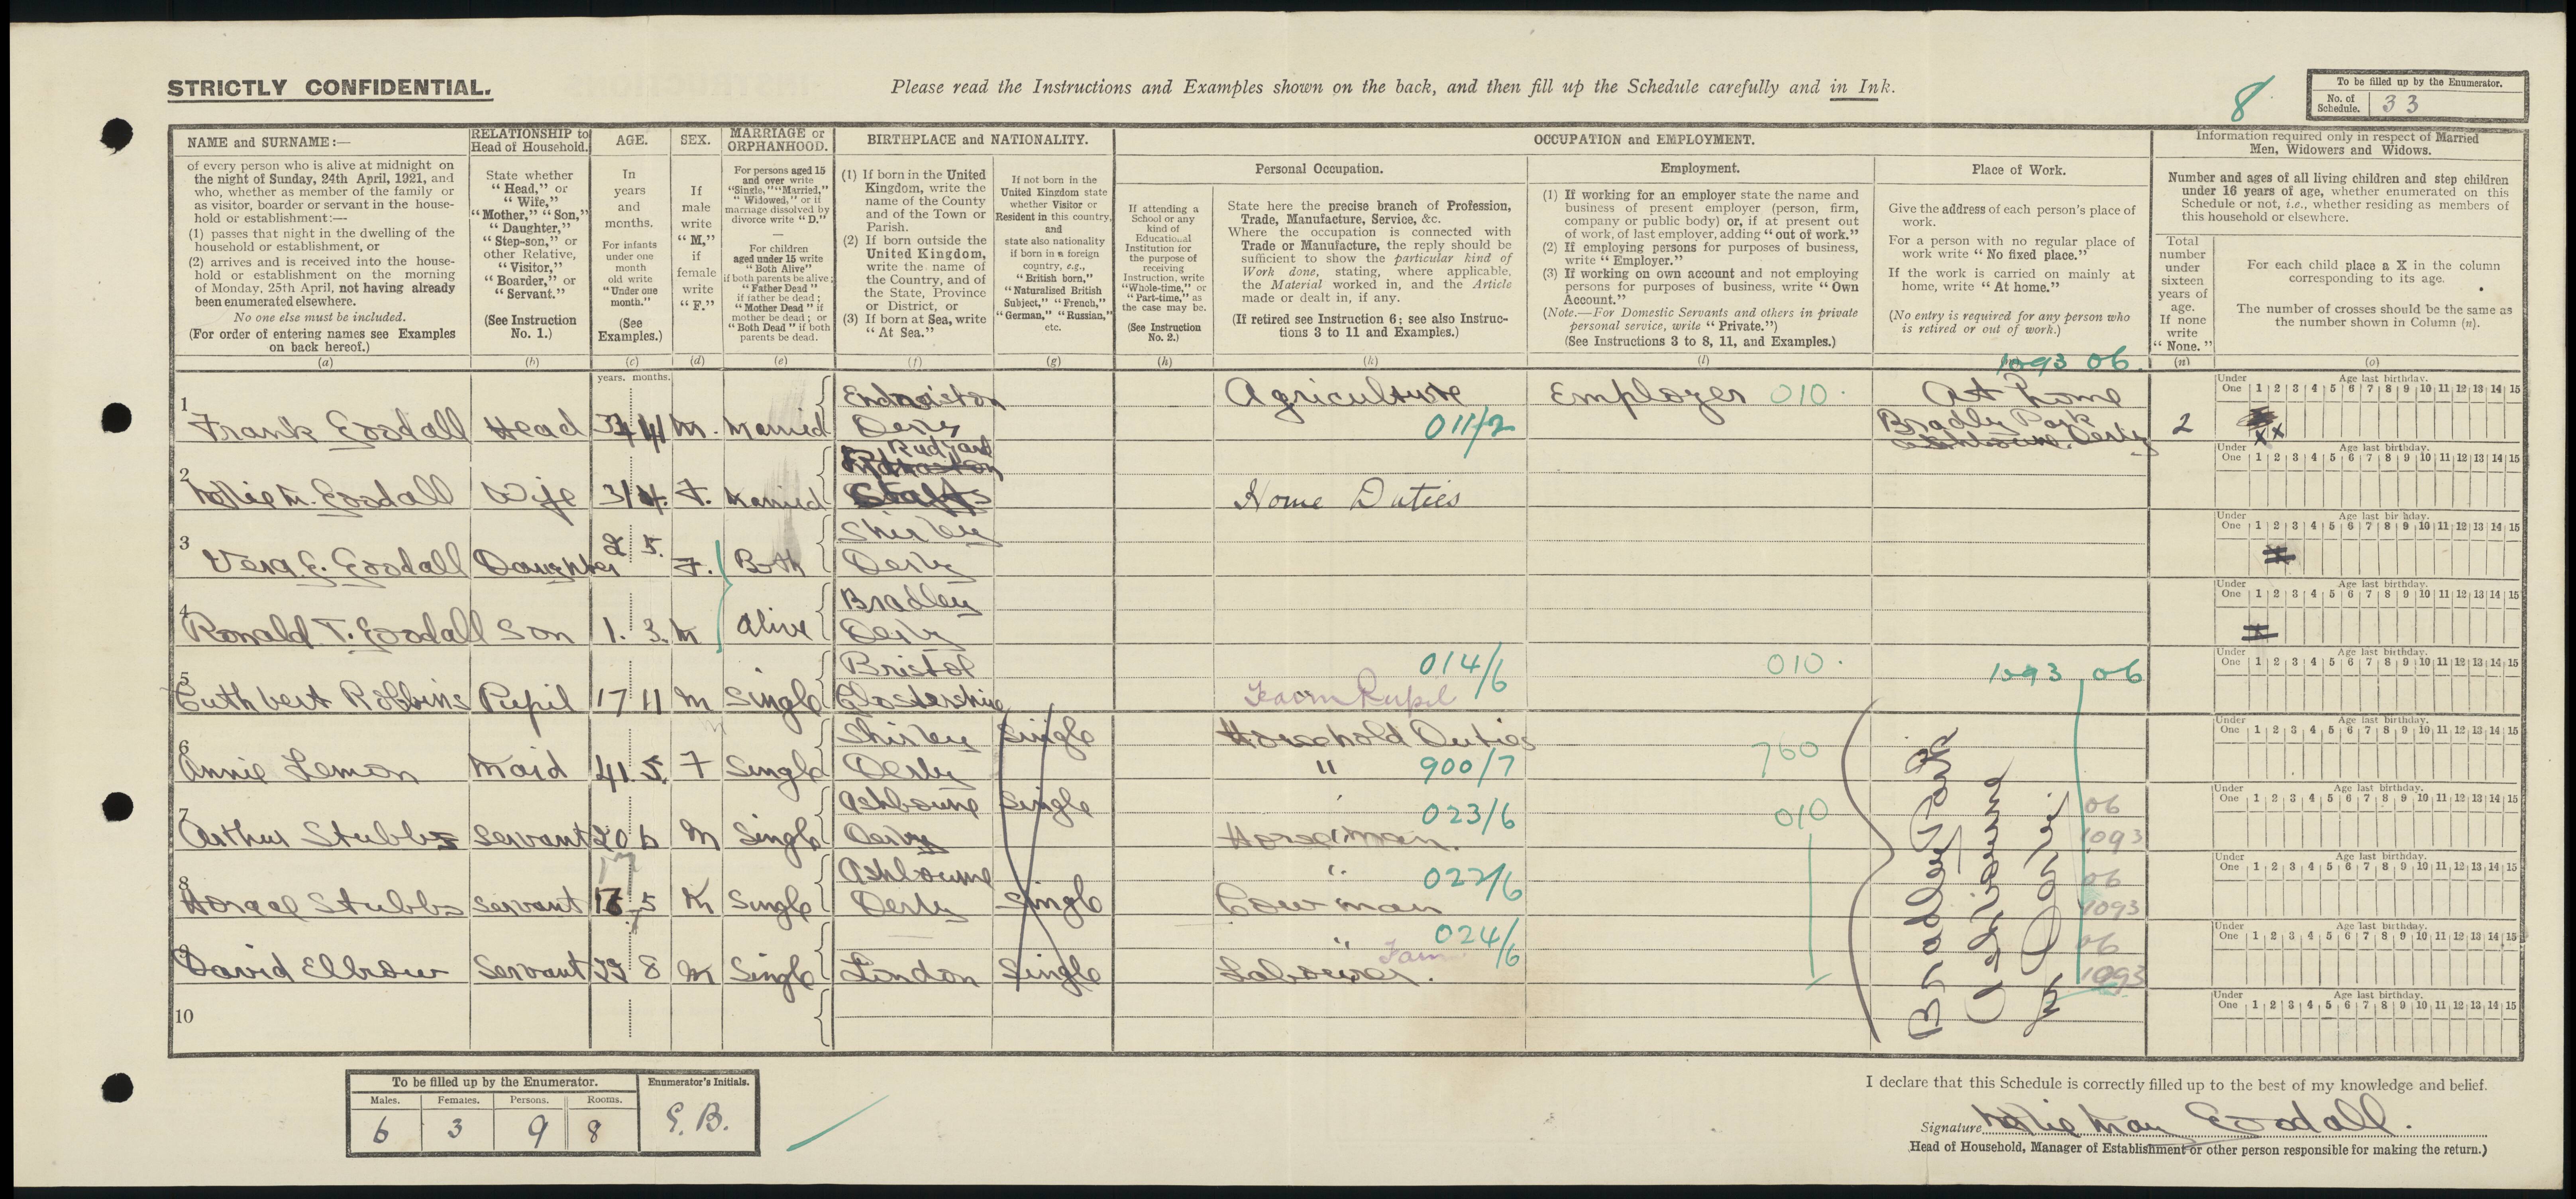 STRICTLY CONFIDENTIAL.
Please read the Instructions and Examples shown on the back, and then fill up the Schedule carefully and in Ink.
8
To be filled up by the Enumerator.
No. of Schedule. 33
NAME and SURNAME:—
of every person who is alive at midnight on
the night of Sunday, 24th April, 1921, and
who, whether as member of the family or
as visitor, boarder or servant in the house-
hold or establishment:—
(1) passes that night in the dwelling of the
household or establishment, or
(2) arrives and is received into the house-
hold or establishment on the morning
of Monday, 25th April, not having already
been enumerated elsewhere.
No one else must be included.
(For order of entering names see Examples
on back hereof.)
(a)
RELATIONSHIP to
Head of Household.
State whether
"Head," or
"Wife,"
"Mother," "Son,"
"Daughter,"
"Step-son," or
other Relative,
"Visitor,"
"Boarder," or
"Servant."
(See Instruction
No. 1.)
(b)
AGE.
In
years
and
months.
For infants
under one
month
old write
"Under one
month."
(See
Examples.)
(c)
SEX.
If
male
write
"M,"
if
female
write
"F."
(d)
MARRIAGE or
ORPHANHOOD.
For persons aged 15
and over write
"Single," "Married,"
"Widowed," or if
marriage dissolved by
divorce write "D."
—
For children
aged under 15 write
"Both Alive"
if both parents be alive;
"Father Dead"
if father be dead;
"Mother Dead" if
mother be dead; or
"Both Dead" if both
parents be dead.
(e)
BIRTHPLACE and NATIONALITY.
(1) If born in the United
Kingdom, write the
name of the County
and of the Town or
Parish.
(2) If born outside the
United Kingdom,
write the name of
the Country, and of
the State, Province
or District, or
(3) If born at Sea, write
"At Sea."
(f)
If not born in the
United Kingdom state
whether Visitor or
Resident in this country,
and
state also nationality
if born in a foreign
country, e.g.,
"British born,"
"Naturalised British
Subject," "French,"
"German," "Russian,"
etc.
(g)
OCCUPATION and EMPLOYMENT.
If attending a
School or any
kind of
Educational
Institution for
the purpose of
receiving
Instruction, write
"Whole-time," or
"Part-time," as
the case may be.
(See Instruction
No. 2.)
(h)
Personal Occupation.
State here the precise branch of Profession,
Trade, Manufacture, Service, &c.
Where the occupation is connected with
Trade or Manufacture, the reply should be
sufficient to show the particular kind of
Work done, stating, where applicable,
the Material worked in, and the Article
made or dealt in, if any.
(If retired see Instruction 6; see also Instruc-
tions 3 to 11 and Examples.)
(k)
Employment.
(1) If working for an employer state the name and
business of present employer (person, firm,
company or public body) or, if at present out
of work, of last employer, adding "out of work."
(2) If employing persons for purposes of business,
write "Employer."
(3) If working on own account and not employing
persons for purposes of business, write "Own
Account."
(Note.—For Domestic Servants and others in private
personal service, write "Private.")
(See Instructions 3 to 8, 11, and Examples.)
(l)
Place of Work.
Give the address of each person's place of
work.
For a person with no regular place of
work write "No fixed place."
If the work is carried on mainly at
home, write "At home."
(No entry is required for any person who
is retired or out of work.)
(m)
Information required only in respect of Married
Men, Widowers and Widows.
Number and ages of all living children and step children
under 16 years of age, whether enumerated on this
Schedule or not, i.e., whether residing as members of
this household or elsewhere.
Total
number
under
sixteen
years of
age.
If none
write
"None."
(n)
For each child place a X in the column
corresponding to its age.
The number of crosses should be the same as
the number shown in Column (n).
(o)
years. months.
1093 06
Under One Age last birthday. 1 2 3 4 5 6 7 8 9 10 11 12 13 14 15
1 Frank Goodall Head 34 4 M. Married Ednaston Derby Agriculture 011/2 Employer 010 At Home Bradley Park Ashbourne Derby 2 X X
2 Goodall Wife 31 4. F. Married Rudyard Staffs Home Duties
3 Vera. E. Goodall Daughter 2 5. F. Both Shirley Derby
4 Ronald T. Goodall Son 1. 3. M Alive Bradley Derby
5 Cuthbert Robbins Pupil 17 11 M Single Bristol Glostershire Farm Pupil 014/6 010 1093 06
6 Annie Lemon Maid 41. 5. F Single Shirley Derby Single Household Duties " 900/7 760
7 Arthur Stubbs Servant 20 6 M Single Ashbourne Derby Single Horseman. 023/6 010 06 1093
8 Horace Stubbs Servant 17 5 M Single Ashbourne Derby Single " Cowman 022/6 06 1093
9 David Servant 8 M Single London Single " Farm Labourer. 024/6 06 1093
10
Bradley Park
Ashbourne
Derby
To be filled up by the Enumerator.
Males. Females. Persons. Rooms.
6 3 9 8
Enumerator's Initials.
G.B.
I declare that this Schedule is correctly filled up to the best of my knowledge and belief.
Signature May Goodall.
Head of Household, Manager of Establishment or other person responsible for making the return.)